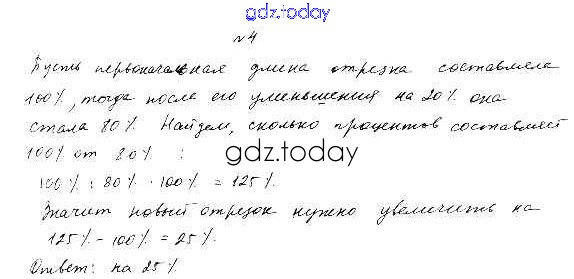 gdz.today
№4
Пусть первоначальная длина отрезка составляла
100%, тогда после его уменьшения на 20% она
стала 80%. Найдем, сколько процентов составляет
100% от 80% :
gdz.today
100% : 80% · 100% = 125%.
Значит новый отрезок нужно увеличить на
125% - 100% = 25%.
Ответ: на 25%